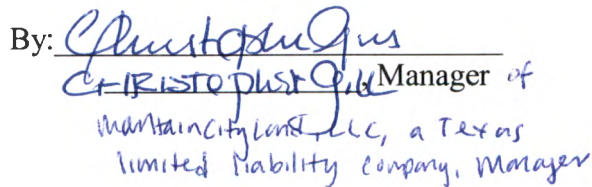 By: Christopher Gill
CHRISTOPHER Gill, Manager of
LLC, a Texas
limited liability company, Manager